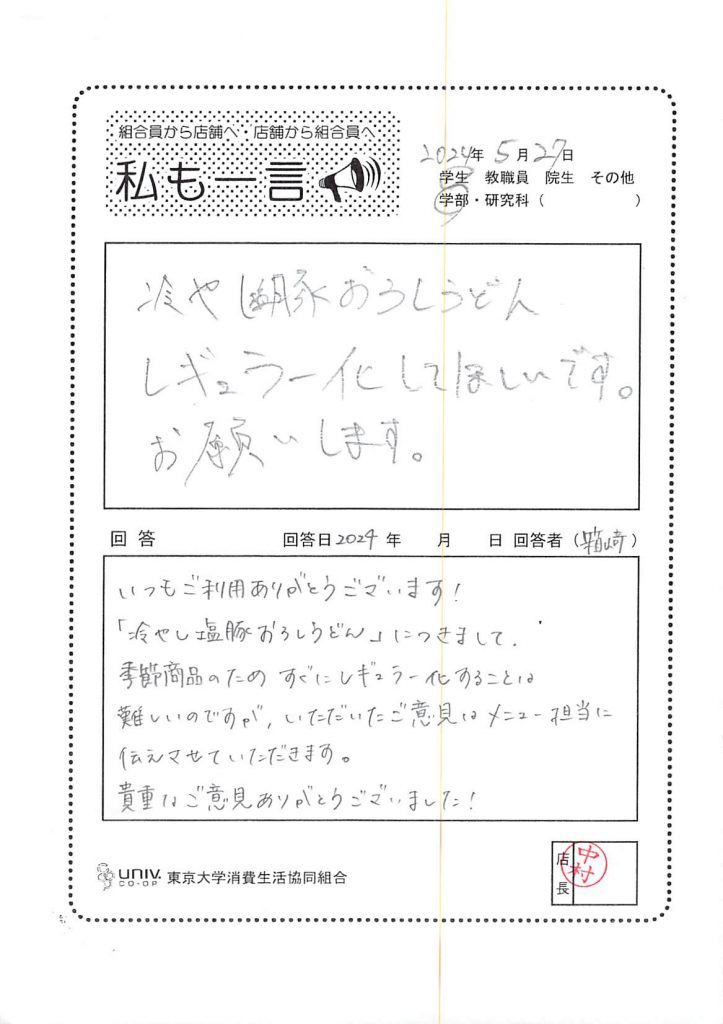 組合員から店舗へ・店舗から組合員へ
私も一言
2024年 5月27日
学生 教職員 院生 その他
学部・研究科（ ）
冷やし塩豚おろしうどん
レギュラー化してほしいです。
お願いします。
回答 回答日2024年 月 日 回答者（箱崎）
いつもご利用ありがとうございます!
「冷やし塩豚おろしうどん」につきまして、
季節商品のため すぐにレギュラー化することは
難しいのですが、いただいたご意見はメニュー担当に
伝えさせていただきます。
貴重なご意見ありがとうございました!
店長
中村
UNIV. CO-OP 東京大学消費生活協同組合